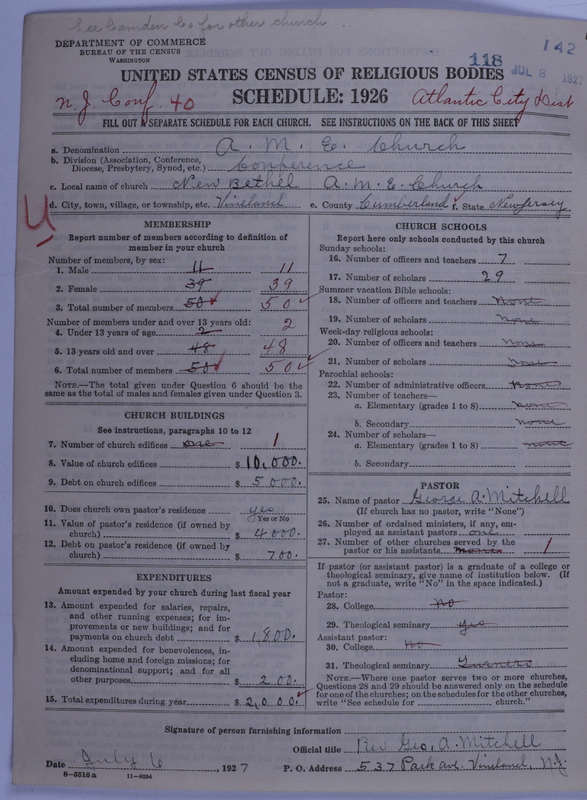 See Camden Co for other church.
DEPARTMENT OF COMMERCE
BUREAU OF THE CENSUS
WASHINGTON
118
142
JUL 8 192
UNITED STATES CENSUS OF RELIGIOUS BODIES
SCHEDULE: 1926
N. J. Conf. 40
Atlantic City Dist
FILL OUT A SEPARATE SCHEDULE FOR EACH CHURCH. SEE INSTRUCTIONS ON THE BACK OF THIS SHEET
a. Denomination A. M. E. Church
b. Division (Association, Conference, Diocese, Presbytery, Synod, etc.) Conference
c. Local name of church New Bethel A. M. E. Church
d. City, town, village, or township, etc. Vineland e. County Cumberland f. State New Jersey
U
MEMBERSHIP
Report number of members according to definition of member in your church
Number of members, by sex:
1. Male 11 11
2. Female 39 39
3. Total number of members 50 50
Number of members under and over 13 years old:
4. Under 13 years of age 2 2
5. 13 years old and over 48 48
6. Total number of members 50 50
NOTE.—The total given under Question 6 should be the same as the total of males and females given under Question 3.
CHURCH BUILDINGS
See instructions, paragraphs 10 to 12
7. Number of church edifices one 1
8. Value of church edifices $ 10,000.
9. Debt on church edifices $ 5000.
10. Does church own pastor's residence? yes
Yes or No
11. Value of pastor's residence (if owned by church) $ 4000.
12. Debt on pastor's residence (if owned by church) $ 700.
EXPENDITURES
Amount expended by your church during last fiscal year
13. Amount expended for salaries, repairs, and other running expenses; for improvements or new buildings; and for payments on church debt $ 1,800.
14. Amount expended for benevolences, including home and foreign missions; for denominational support; and for all other purposes $ 200.
15. Total expenditures during year $ 2,000.
CHURCH SCHOOLS
Report here only schools conducted by this church
Sunday schools:
16. Number of officers and teachers 7
17. Number of scholars 29
Summer vacation Bible schools:
18. Number of officers and teachers none
19. Number of scholars none
Week-day religious schools:
20. Number of officers and teachers none
21. Number of scholars none
Parochial schools:
22. Number of administrative officers none
23. Number of teachers—
a. Elementary (grades 1 to 8) none
b. Secondary none
24. Number of scholars—
a. Elementary (grades 1 to 8) none
b. Secondary
PASTOR
25. Name of pastor George A. Mitchell
(If church has no pastor, write "None")
26. Number of ordained ministers, if any, employed as assistant pastors one
27. Number of other churches served by the pastor or his assistants 1
If pastor (or assistant pastor) is a graduate of a college or theological seminary, give name of institution below. (If not a graduate, write "No" in the space indicated.)
Pastor:
28. College No
29. Theological seminary yes
Assistant pastor:
30. College no
31. Theological seminary Turners
NOTE.—Where one pastor serves two or more churches, Questions 28 and 29 should be answered only on the schedule for one of the churches; on the schedules for the other churches, write "See schedule for church."
Signature of person furnishing information
Official title Rev Geo. A. Mitchell
Date July 6, 1927 P. O. Address 537 Park ave. Vineland, N.J.
8—5518a 11—9224